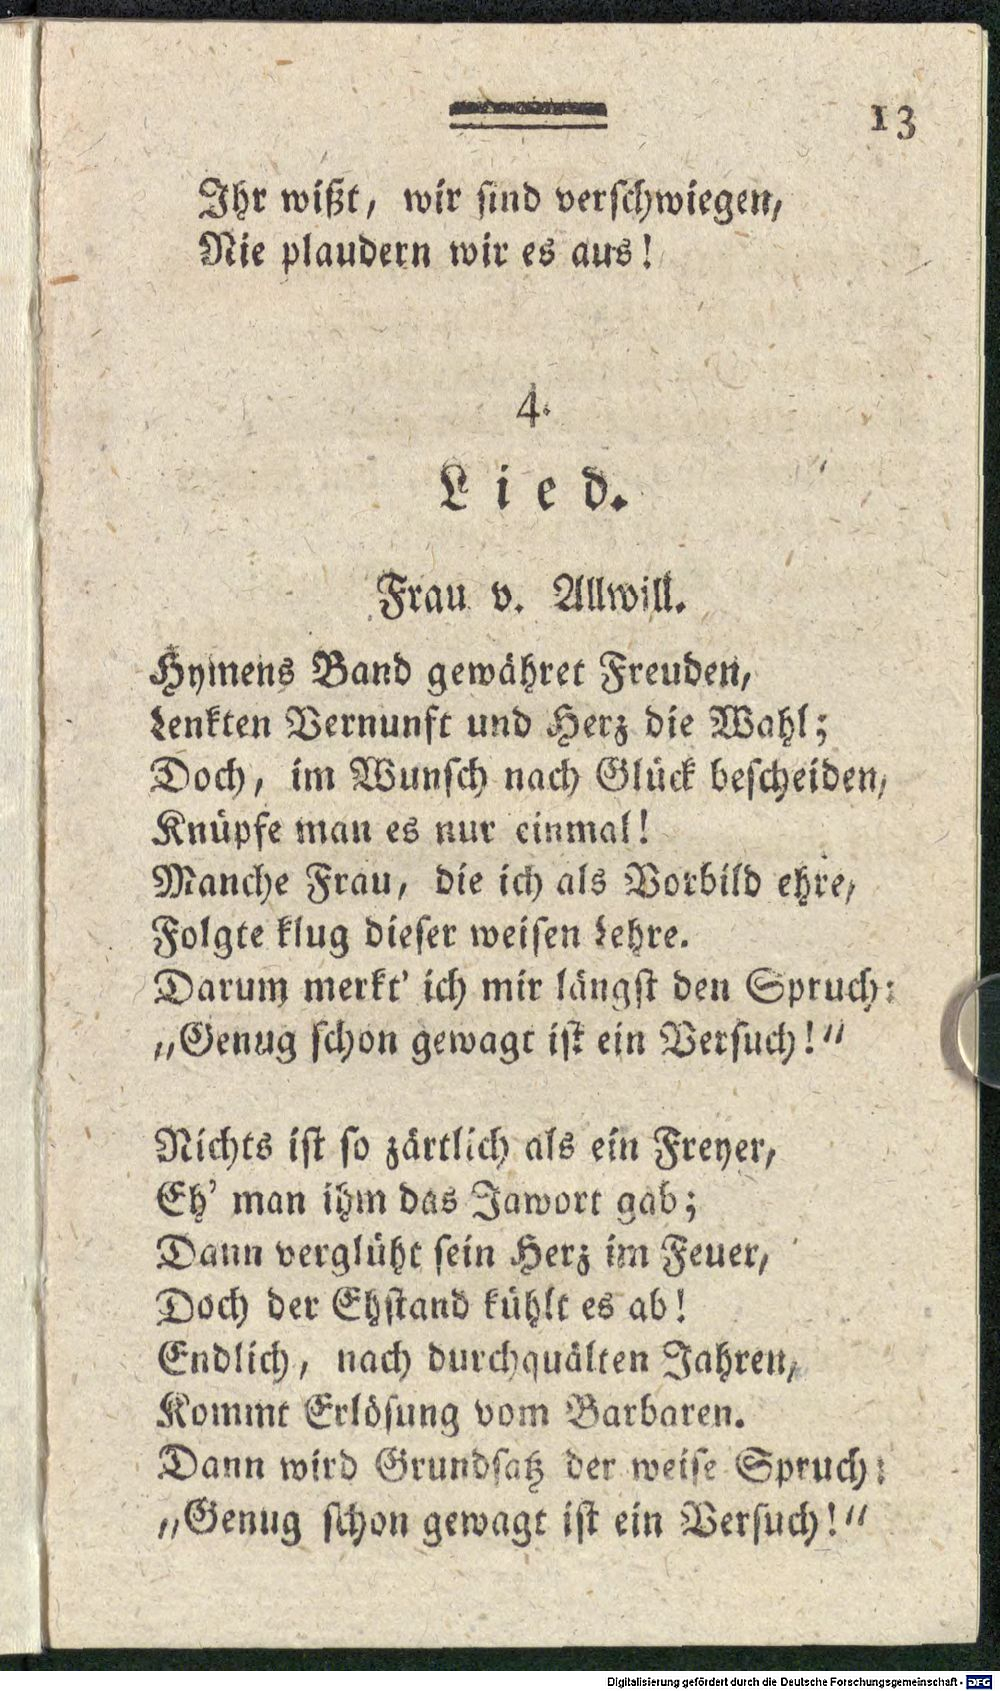 13
Ihr wißt, wir sind verschwiegen,
Nie plaudern wir es aus!
4.
Lied.
Frau v. Allwill.
Hymens Band gewähret Freuden,
Lenkten Vernunft und Herz die Wahl;
Doch, im Wunsch nach Glück bescheiden,
Knüpfe man es nur einmal!
Manche Frau, die ich als Vorbild ehre,
Folgte klug dieser weisen Lehre.
Darum merkt' ich mir längst den Spruch:
„Genug schon gewagt ist ein Versuch!“
Nichts ist so zärtlich als ein Freyer,
Eh' man ihm das Jawort gab;
Dann verglüht sein Herz im Feuer,
Doch der Ehstand kühlt es ab!
Endlich, nach durchquälten Jahren,
Kommt Erlösung vom Barbaren.
Dann wird Grundsatz der weise Spruch:
„Genug schon gewagt ist ein Versuch!“
Digitalisierung gefördert durch die Deutsche Forschungsgemeinschaft - DFG